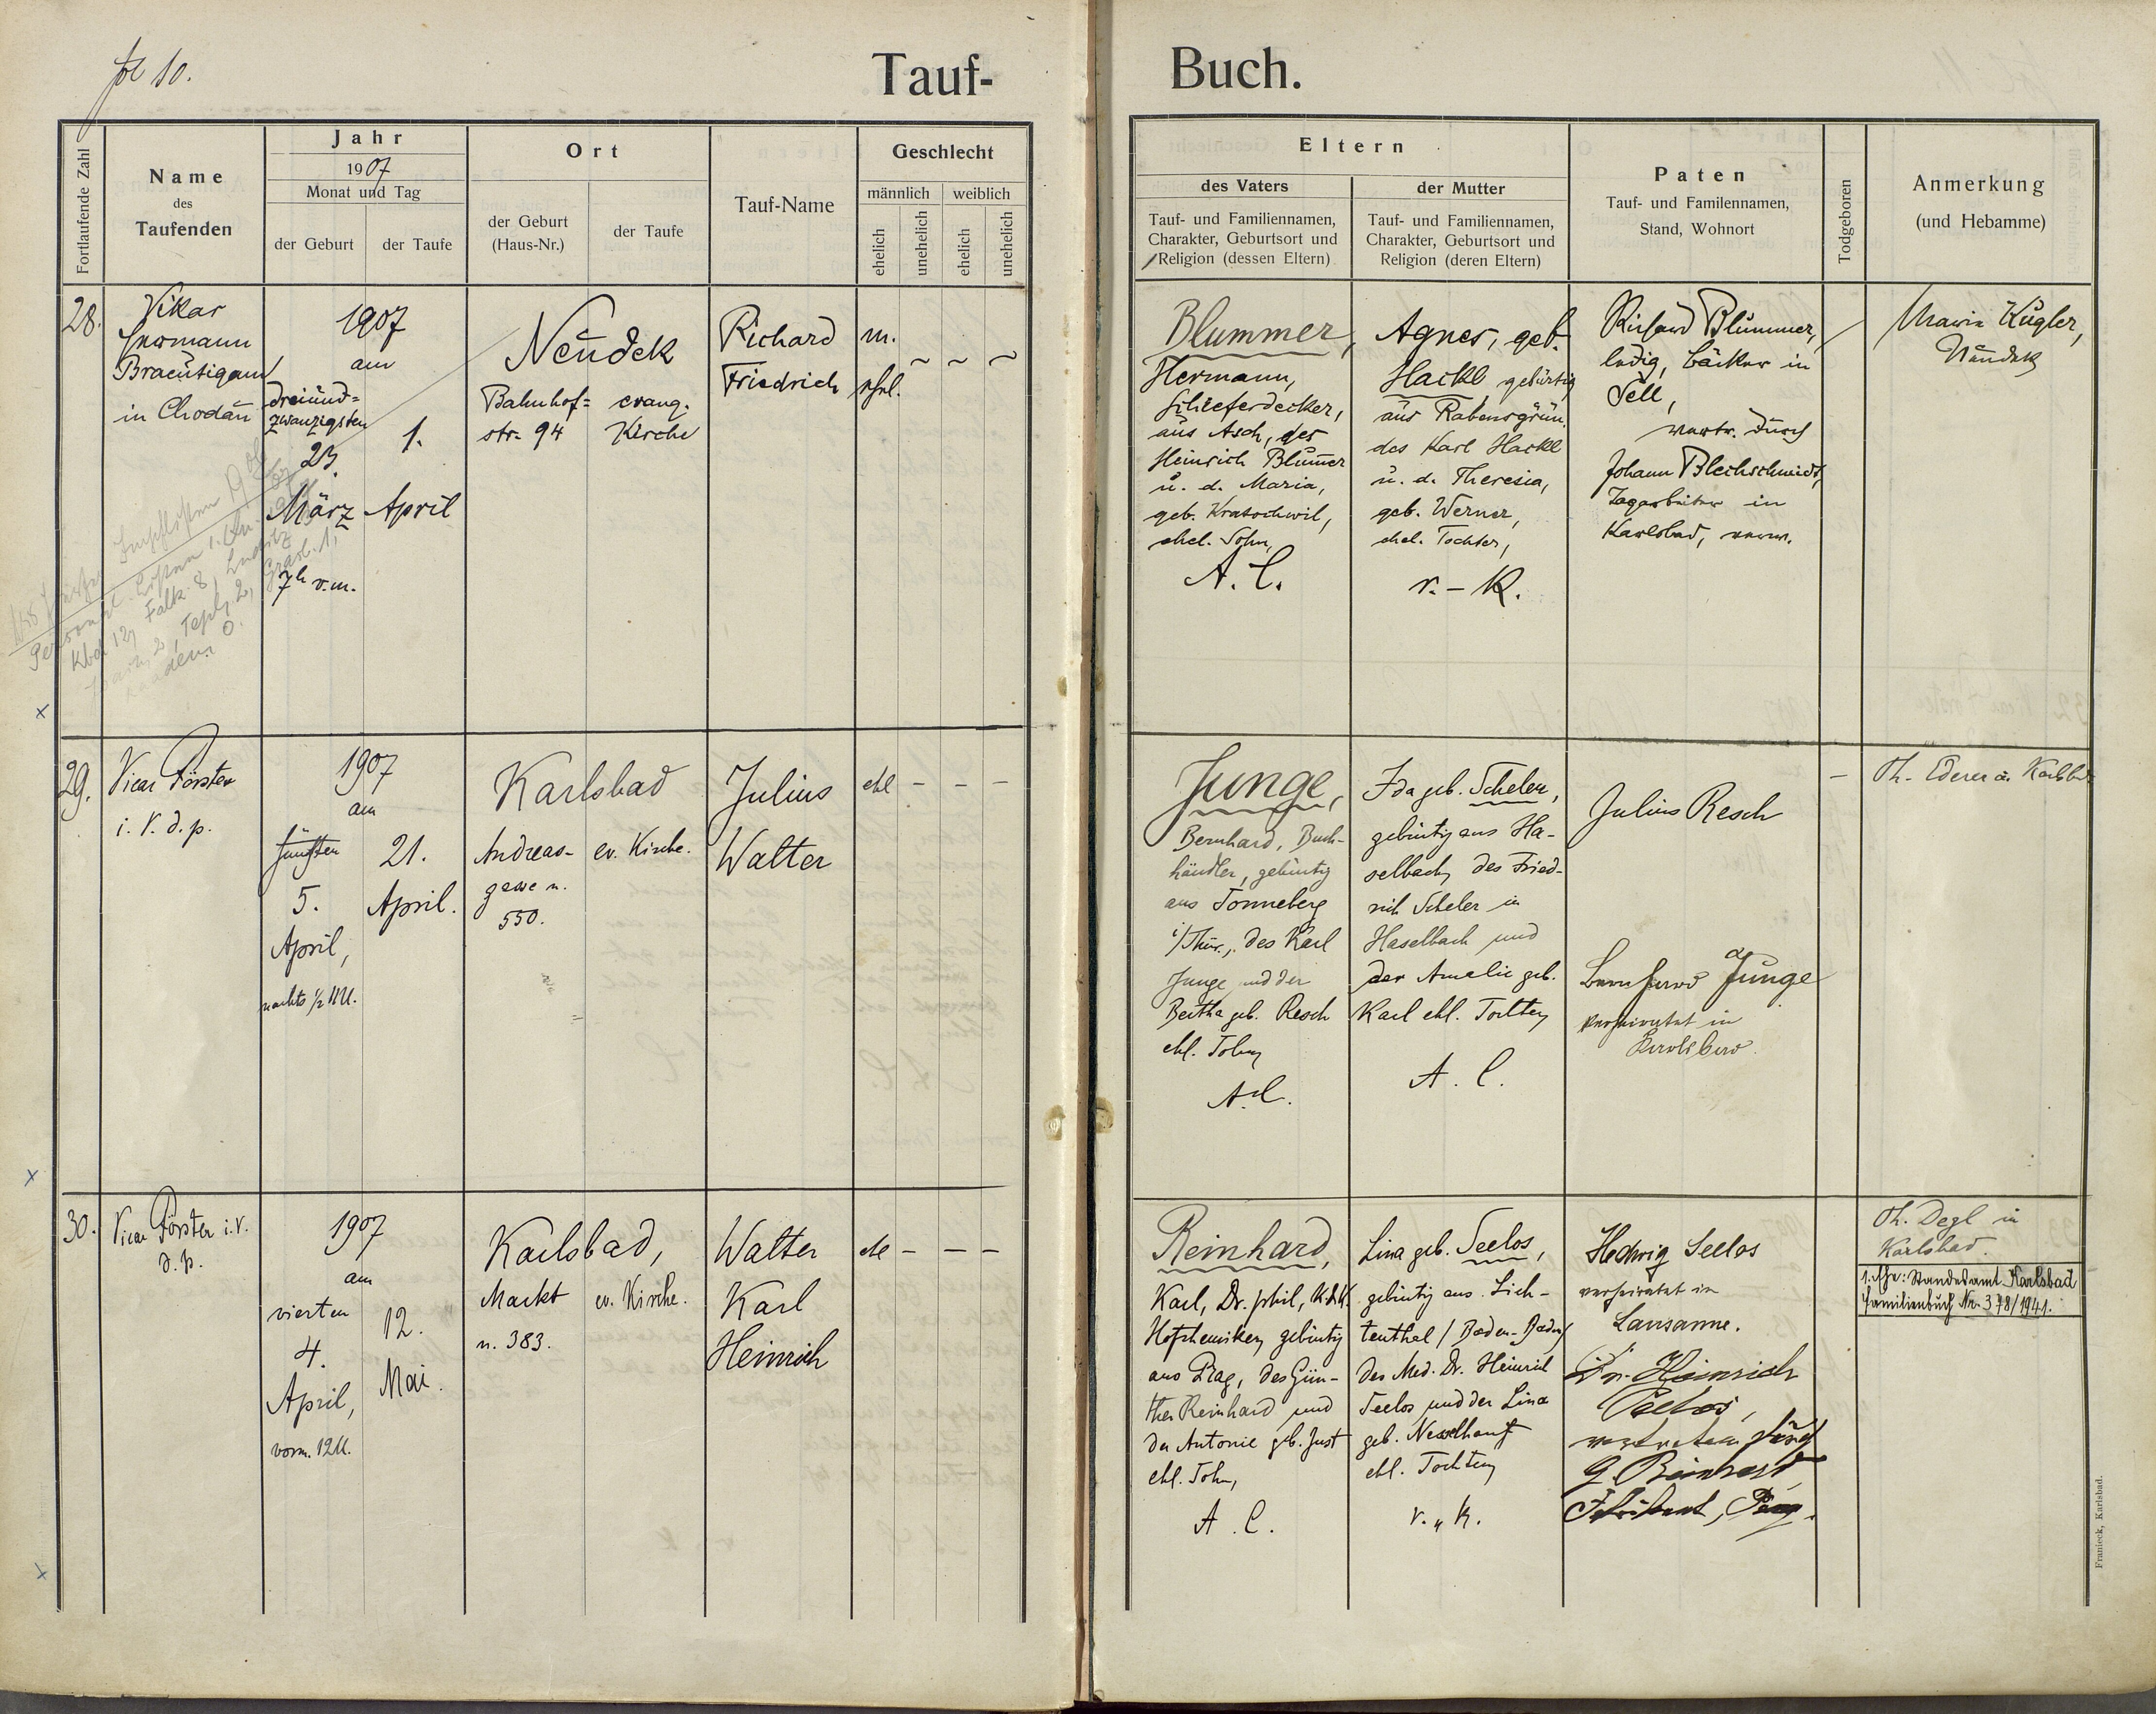 fol 10.
Tauf-
Buch.
Fortlaufende Zahl
Name
des
Taufenden
Jahr
1907
Monat und Tag
der Geburt
der Taufe
Ort
der Geburt
(Haus-Nr.)
der Taufe
Tauf-Name
Geschlecht
männlich
weiblich
ehelich
unehelich
ehelich
unehelich
Eltern
des Vaters
Tauf- und Familiennamen,
Charakter, Geburtsort und
Religion (dessen Eltern)
der Mutter
Tauf- und Familiennamen,
Charakter, Geburtsort und
Religion (deren Eltern)
Paten
Tauf- und Familennamen,
Stand, Wohnort
Todgeboren
Anmerkung
(und Hebamme)
28.
Vikar
Hermann
Braeutigam
in Chodau
1907
am
dreiund-
zwanzigsten
23.
März
7h v.m.
1.
April
Neudek
Bahnhof-
str. 94
evang.
Kirche
Richard
Friedrich
m.
ehel.
~ ~ ~
Blummer,
Hermann,
Schieferdecker,
aus Asch, des
Heinrich Blumer
u. d. Maria,
geb. Kratochwil,
ehel. Sohn,
A. C.
Agnes, geb.
Hackl gebürtig
aus Rabensgrün,
des Karl Hackl
u. d. Theresia,
geb. Werner,
ehel. Tochter,
r.-K.
Richard Blummer,
ledig, Bäcker in
Sell,
vertr. durch
Johann Blechschmidt,
Tagarbeiter in
Karlsbad, verw.
Maria Kugler,
Neudek
29.
Vicar Förster
i. V. d. p.
1907
am
fünften
5.
April,
nachts 1/2 11 U.
21.
April.
Karlsbad
Andreas-
gasse n.
550.
ev. Kirche.
Julius
Walter
ehl - - -
Junge,
Bernhard, Buch-
händler, gebürtig
aus Sonneberg
i/Thür., des Karl
Junge und der
Bertha geb. Resch
ehl. Sohn,
A.C.
Ida geb. Scheler,
gebürtig aus Ha-
selbach, des Fried-
rich Scheler in
Haselbach und
der Amalie geb.
Karl ehl. Tochter,
A. C.
Julius Resch
Bernhard Junge
verheiratet in
Karlsbad.
-
Th. Ederer a. Karlsbad
30.
Vicar Förster i. V.
d. p.
1907
am
vierten
4.
April,
vorm. 12 U.
12.
Mai.
Karlsbad,
Markt
n. 383.
ev. Kirche.
Walter
Karl
Heinrich
ehl - - -
Reinhard,
Karl, Dr. phil, K.k.
Hofchemiker, gebürtig
aus Prag, des Gün-
ther Reinhard und
der Antonie geb. Just
ehl. Sohn,
A. C.
Lina geb. Seelos,
gebürtig aus Lich-
tenthal / Baden-Baden/
des Med. Dr. Heinrich
Seelos und der Lina
geb. Nesselhauf
ehl. Tochter,
r. „ K.
Hedwig Seelos
verheiratet in
Lausanne.
Dr. Heinrich
Seelos,
vertreten durch
G. Reinhard
Fabrikant, Prag.
Th. Degl in
Karlsbad.
1. Ehe: Standesamt Karlsbad
Familienbuch Nr. 378/1941.
Franieck, Karlsbad.